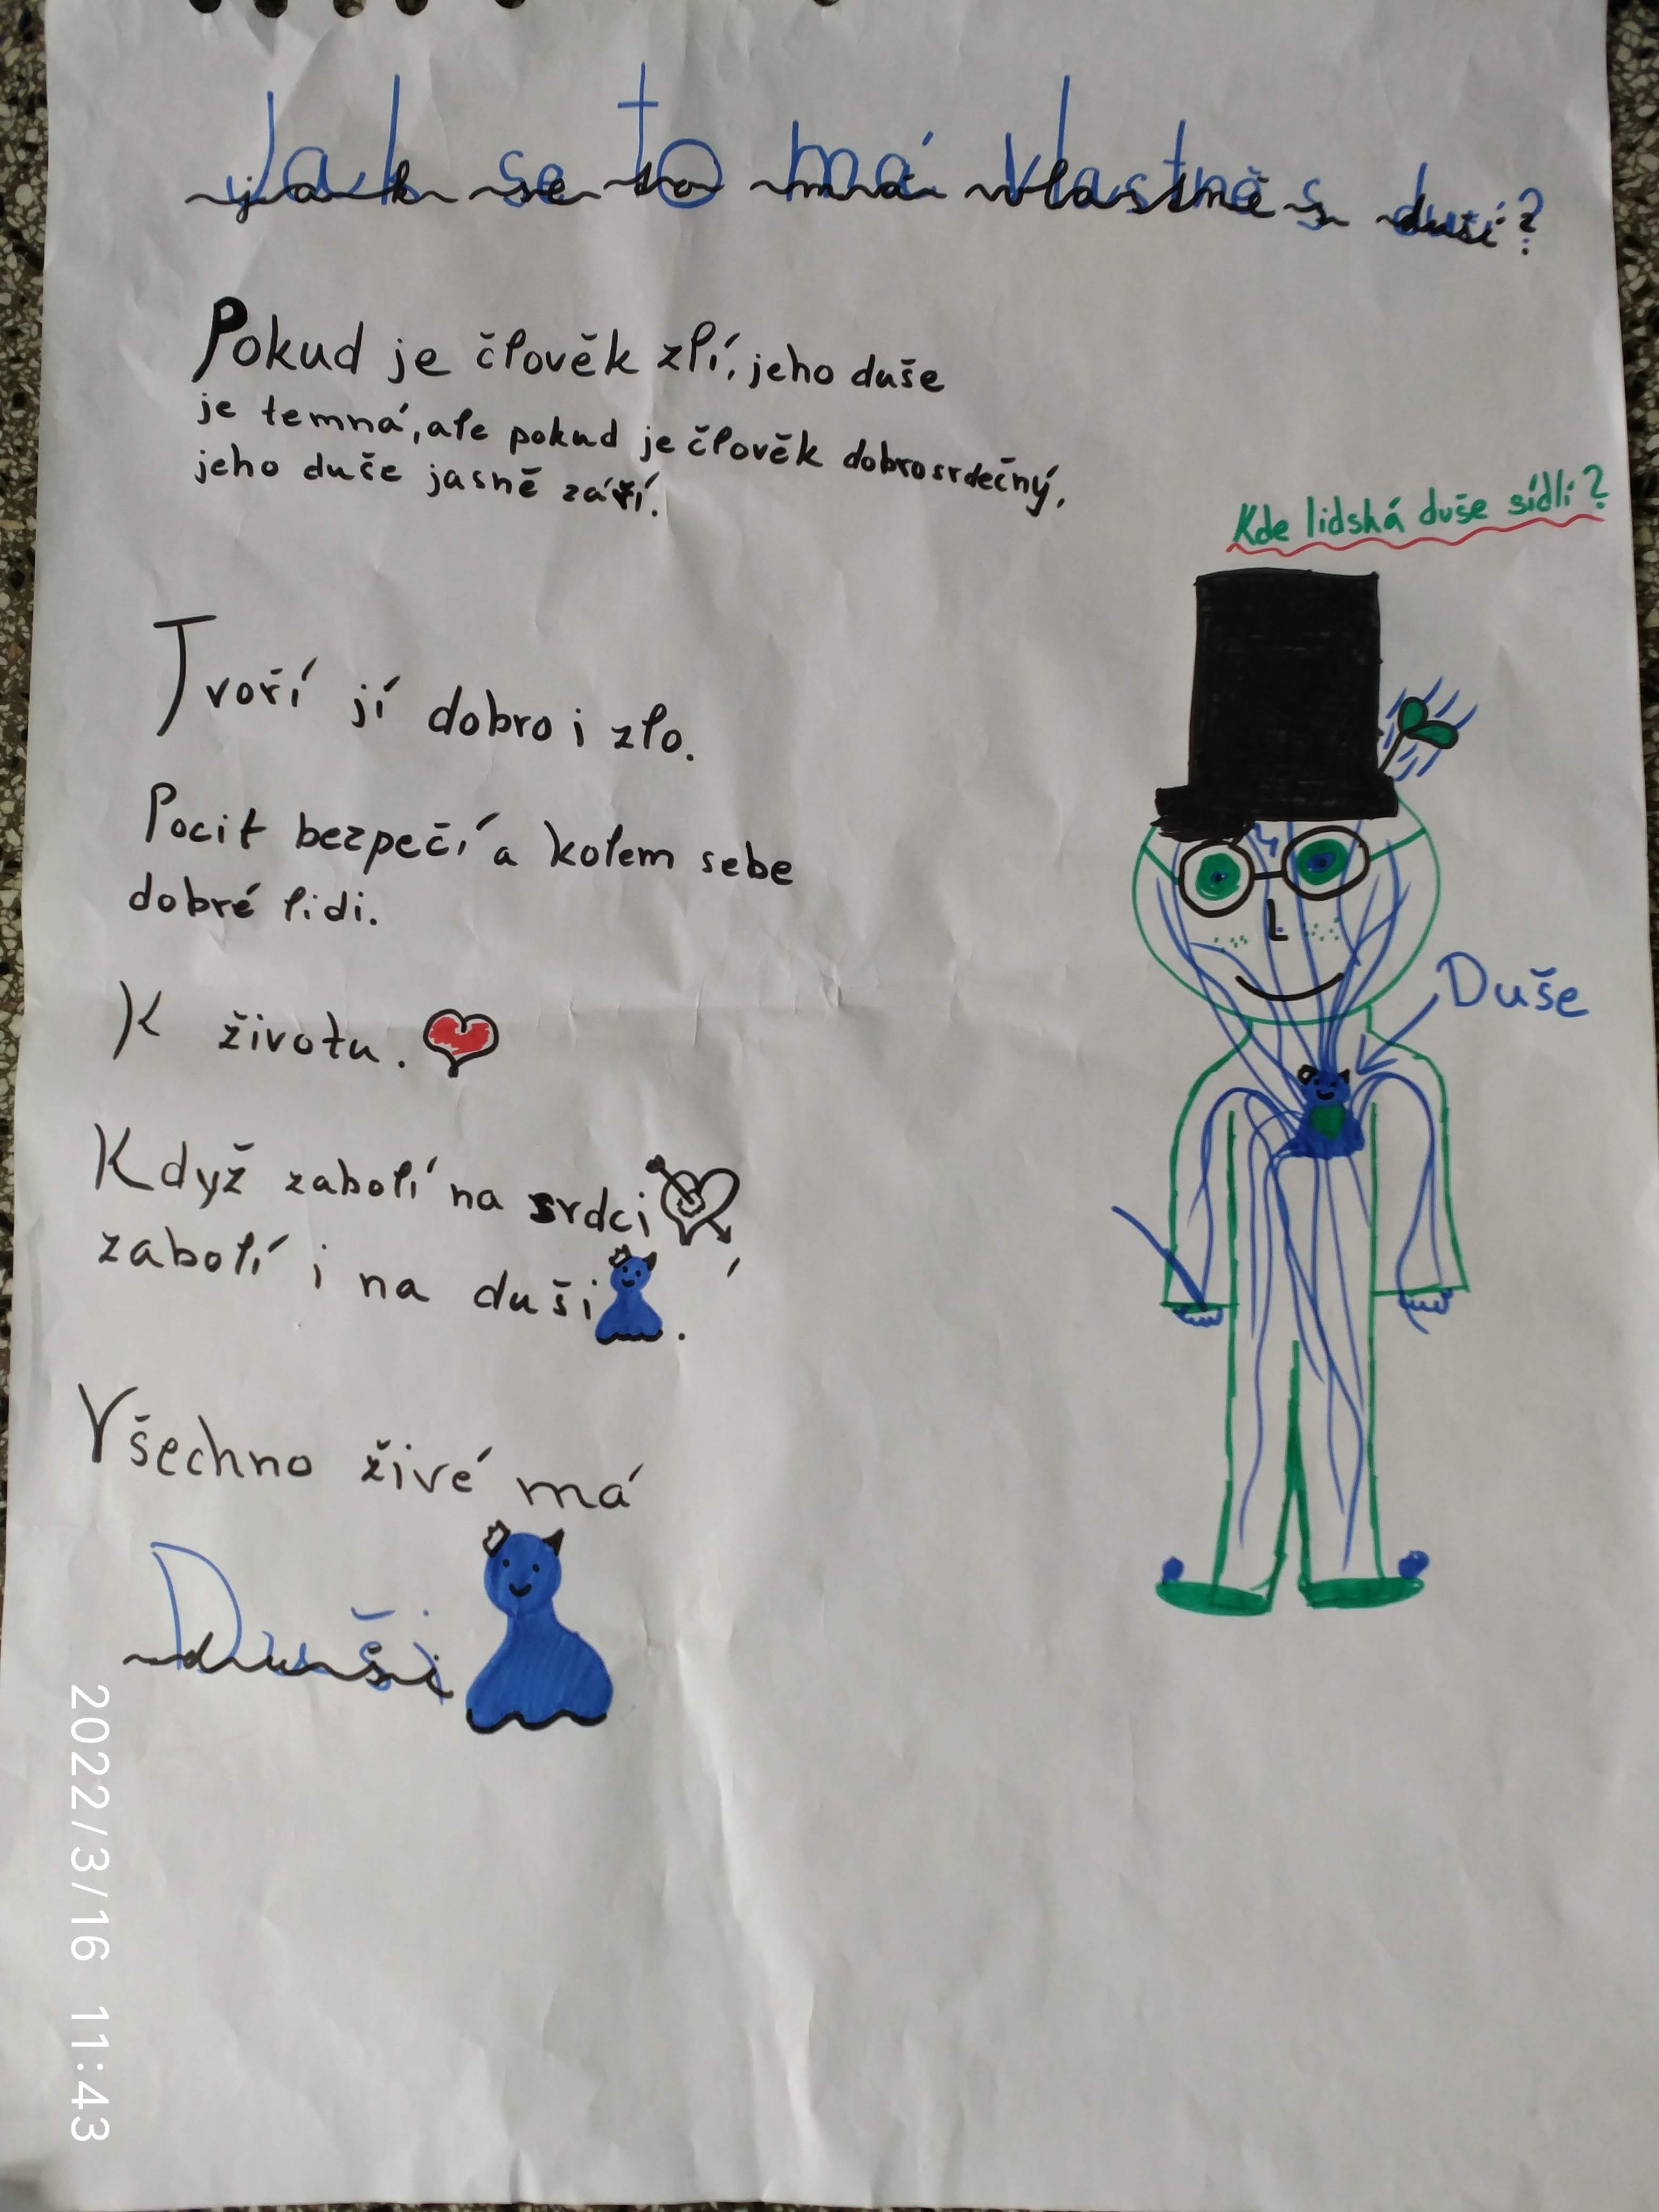 Jak se to má vlastně s duší?
Pokud je člověk zlí, jeho duše
je temná, ale pokud je člověk dobrosrdečný,
jeho duče jasně září.
Kde lidská duše sídlí?
Tvoří jí dobro i zlo.
Pocit bezpečí a kolem sebe
dobré lidi.
Duše
K životu.
Když zabolí na srdci
zabolí i na duši.
Všechno živé má
Duši
2022/3/16 11:43